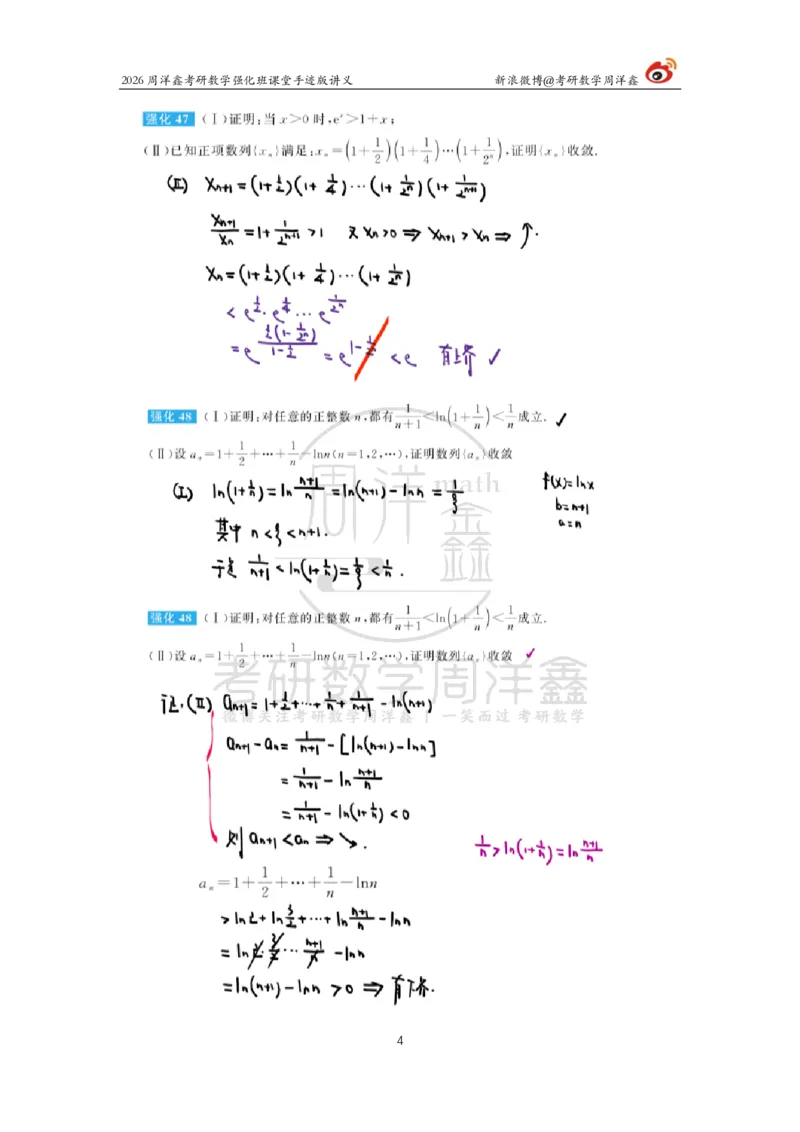 2026 周洋鑫考研数学强化班课堂手迹版讲义 新浪微博@考研数学周洋鑫
强化 47 (Ⅰ)证明:当 x>0 时,eˣ>1+x;
(Ⅱ)已知正项数列{xₙ}满足:xₙ=(1+1/2)(1+1/4)⋯(1+1/2ⁿ),证明{xₙ}收敛.
(Ⅱ) Xₙ₊₁=(1+1/2)(1+1/4)⋯(1+1/2ⁿ)(1+1/2ⁿ⁺¹)
Xₙ₊₁/Xₙ=1+1/2ⁿ⁺¹>1 又Xₙ>0⇒Xₙ₊₁>Xₙ⇒↑.
Xₙ=(1+1/2)(1+1/4)⋯(1+1/2ⁿ)
<e^(1/2)·e^(1/4)⋯e^(1/2ⁿ)
=e^((1/2(1-1/2ⁿ))/(1-1/2))=e^(1-1/2ⁿ)<e 有上界✓
强化 48 (Ⅰ)证明:对任意的正整数 n,都有 1/(n+1)<ln(1+1/n)<1/n 成立.✓
(Ⅱ)设 aₙ=1+1/2+⋯+1/n-lnn(n=1,2,⋯),证明数列{aₙ}收敛
(Ⅰ) ln(1+1/n)=ln (n+1)/n=ln(n+1)-ln n=1/ξ
f(x)=lnx
b=n+1
a=n
其中 n<ξ<n+1.
于是 1/(n+1)<ln(1+1/n)=1/ξ<1/n.
周洋 math
鑫
强化 48 (Ⅰ)证明:对任意的正整数 n,都有 1/(n+1)<ln(1+1/n)<1/n 成立.
(Ⅱ)设 aₙ=1+1/2+⋯+1/n-lnn(n=1,2,⋯),证明数列{aₙ}收敛 ✓
考研数学周洋鑫
微博关注考研数学周洋鑫 | 一笑而过 考研数学
证.(Ⅱ) aₙ₊₁=1+1/2+⋯+1/n+1/(n+1)-ln(n+1)
aₙ₊₁-aₙ=1/(n+1)-[ln(n+1)-lnn]
=1/(n+1)-ln (n+1)/n
=1/(n+1)-ln(1+1/n)<0
则 aₙ₊₁<aₙ⇒↘.
1/n>ln(1+1/n)=ln (n+1)/n
aₙ=1+1/2+⋯+1/n-lnn
>ln2+ln 3/2+⋯+ln (n+1)/n-lnn
=ln2·3/2⋯(n+1)/n-lnn
=ln(n+1)-lnn>0⇒有下界.
4